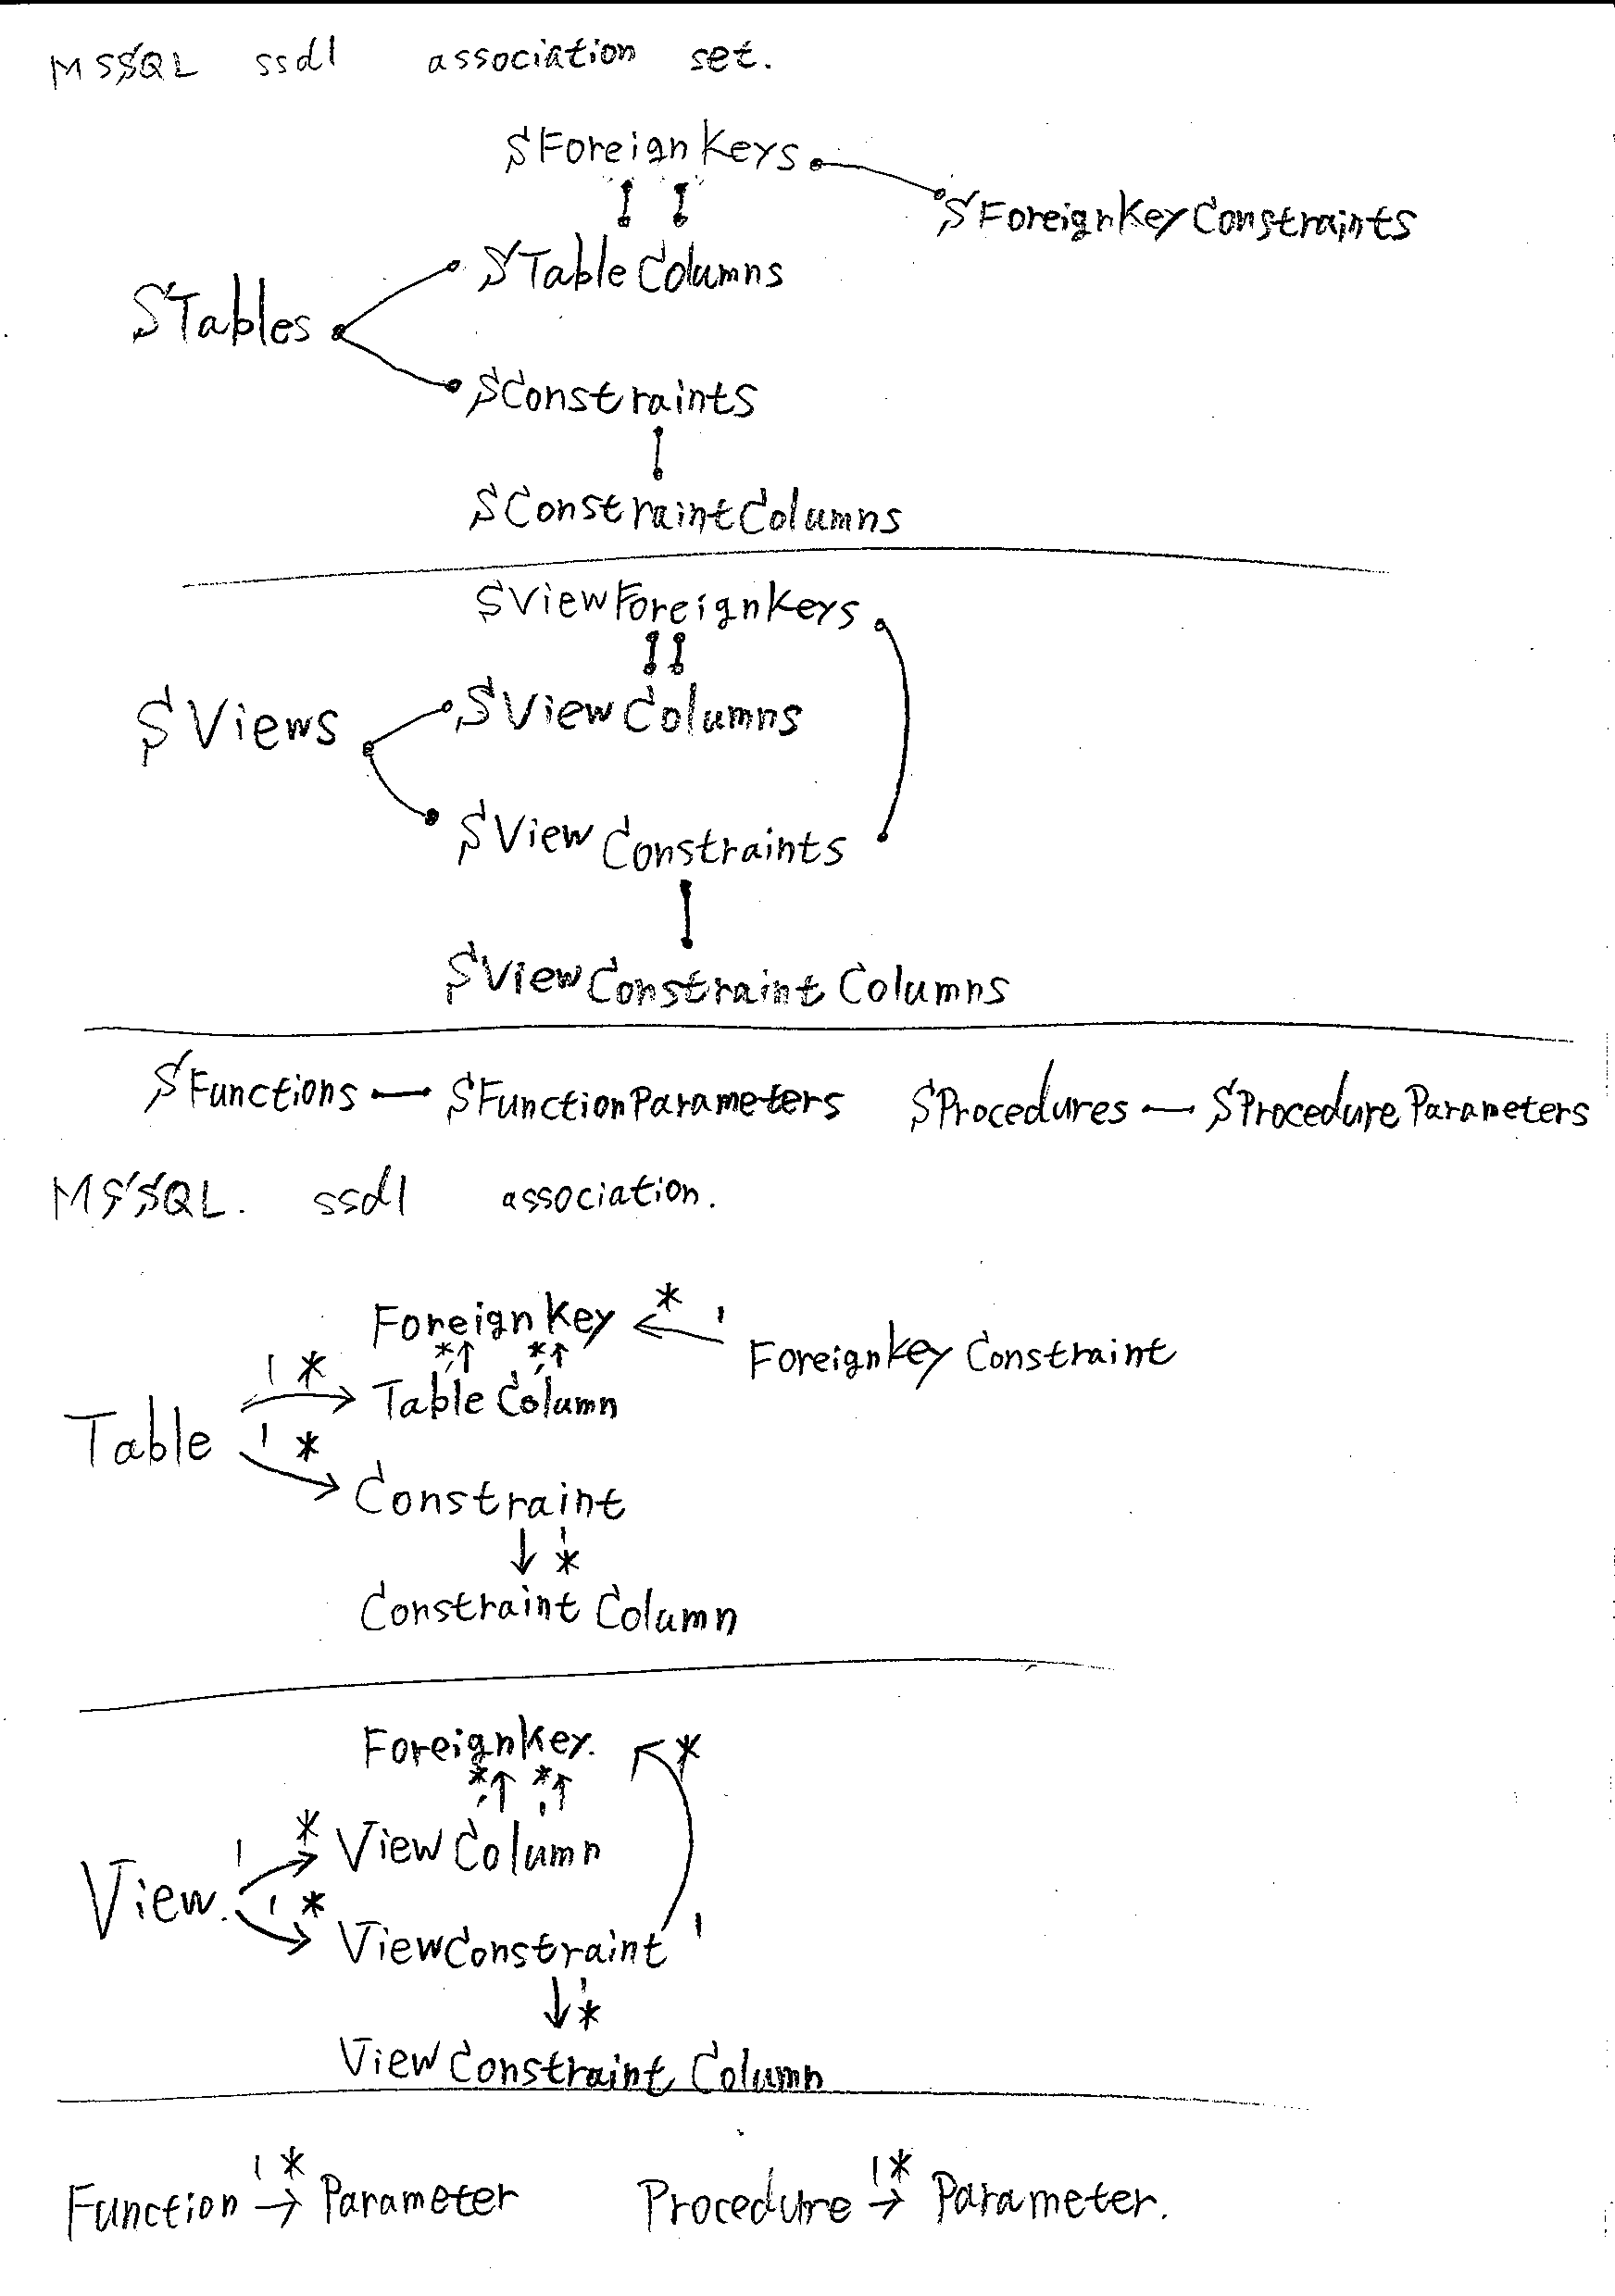 MSSQL ssdl association set.
SForeignKeys
SForeignKeyConstraints
STableColumns
STables
SConstraints
SConstraintColumns
SViewForeignKeys
SViewColumns
SViews
SViewConstraints
SViewConstraintColumns
SFunctions SFunctionParameters SProcedures SProcedureParameters
MSSQL. ssdl association.
ForeignKey * 1
ForeignKeyConstraint
* *
1 * 1 1
TableColumn
Table 1 *
Constraint
1
*
ConstraintColumn
ForeignKey. *
* *
1 1
1 * ViewColumn
View. 1 *
ViewConstraint 1
1
*
ViewConstraintColumn
1 * 1 *
Function → Parameter Procedure → Parameter.